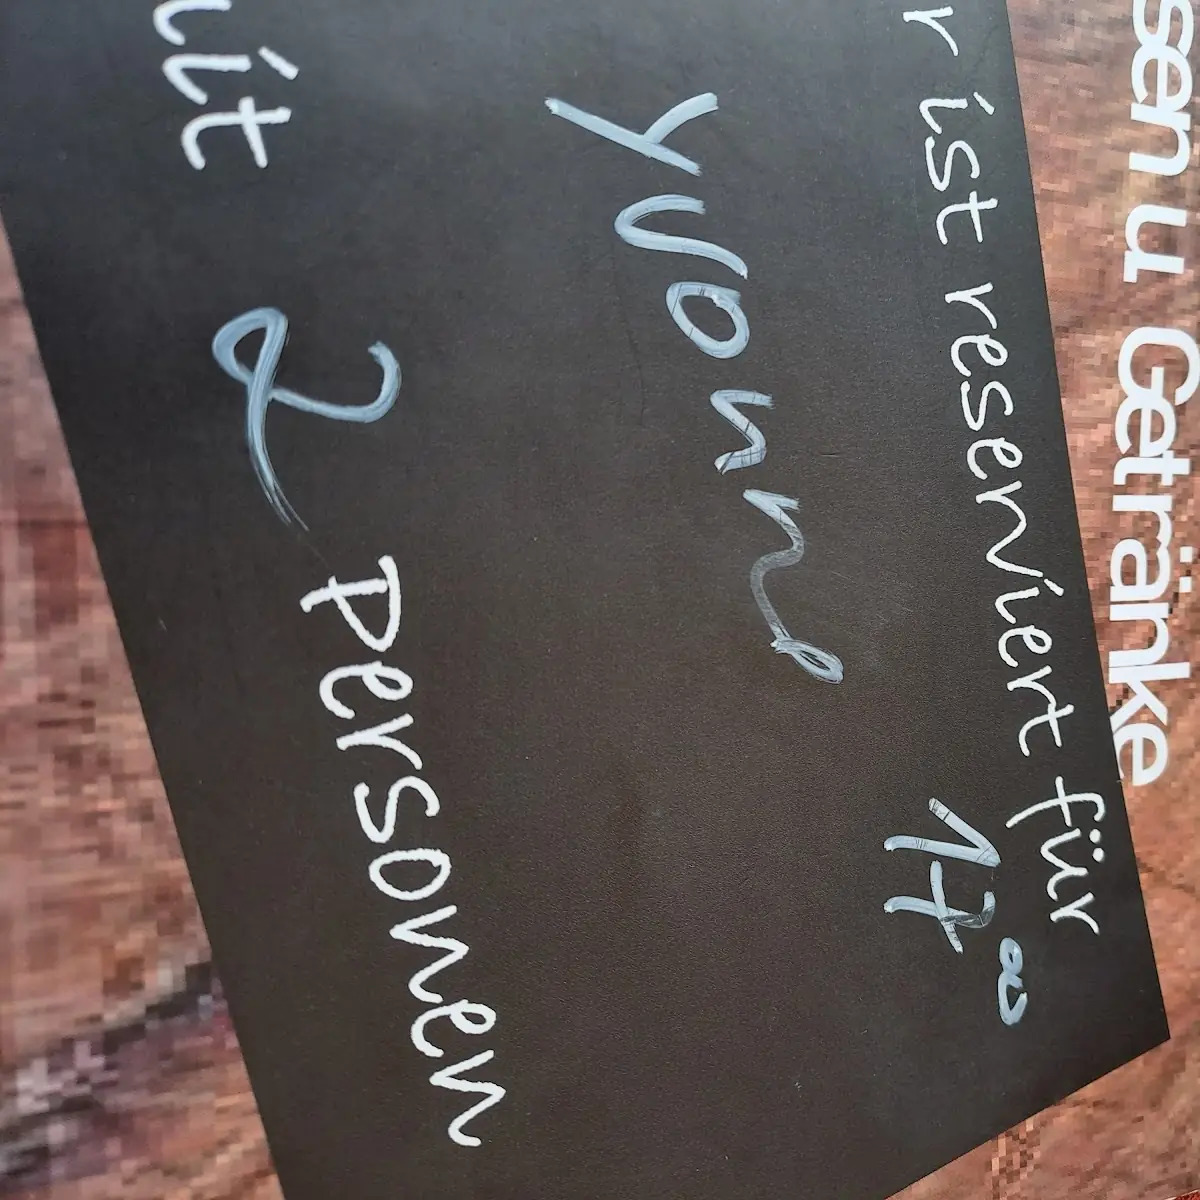 sen u Getränke
r ist reserviert für
17⁰⁰
Yvonne
mit 2 Personen